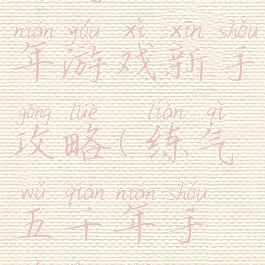 nián yóu xì xīn shǒu
年游戏新手
gōng lüè liàn qì
攻略(练气
wǔ qiān nián shǒu
五千年手